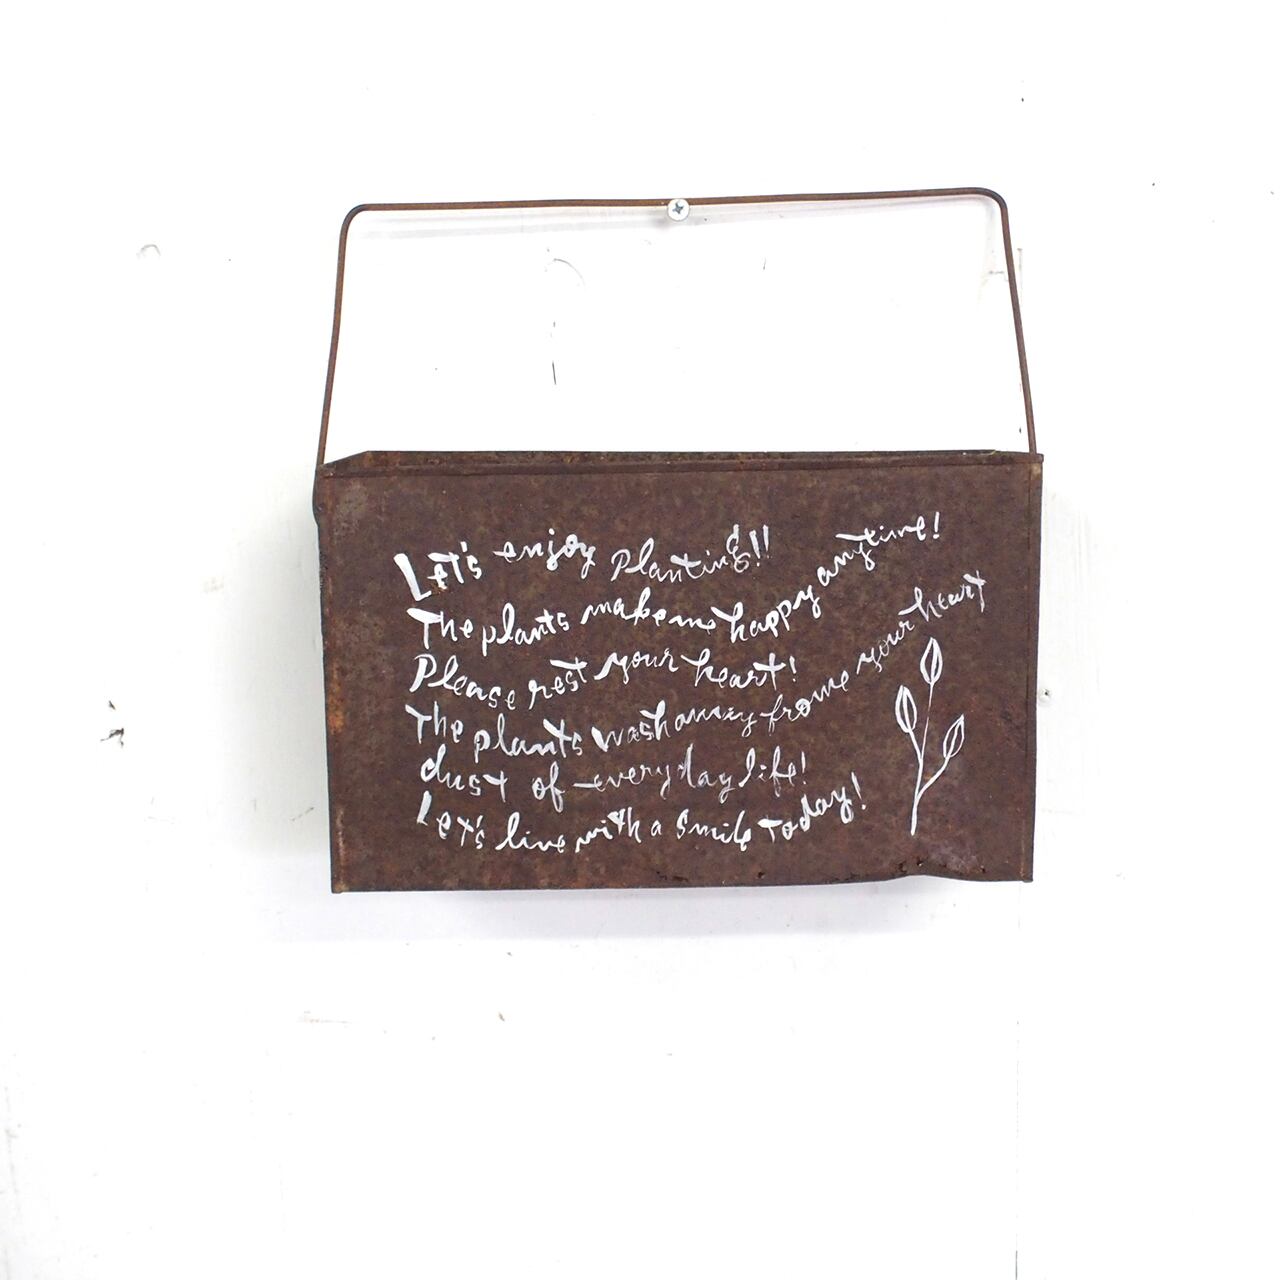 Let's enjoy planting!!
The plants make me happy anytime!
Please rest your heart!
The plants wash away frome your heart
dust of everyday life!
Let's live with a smile today!